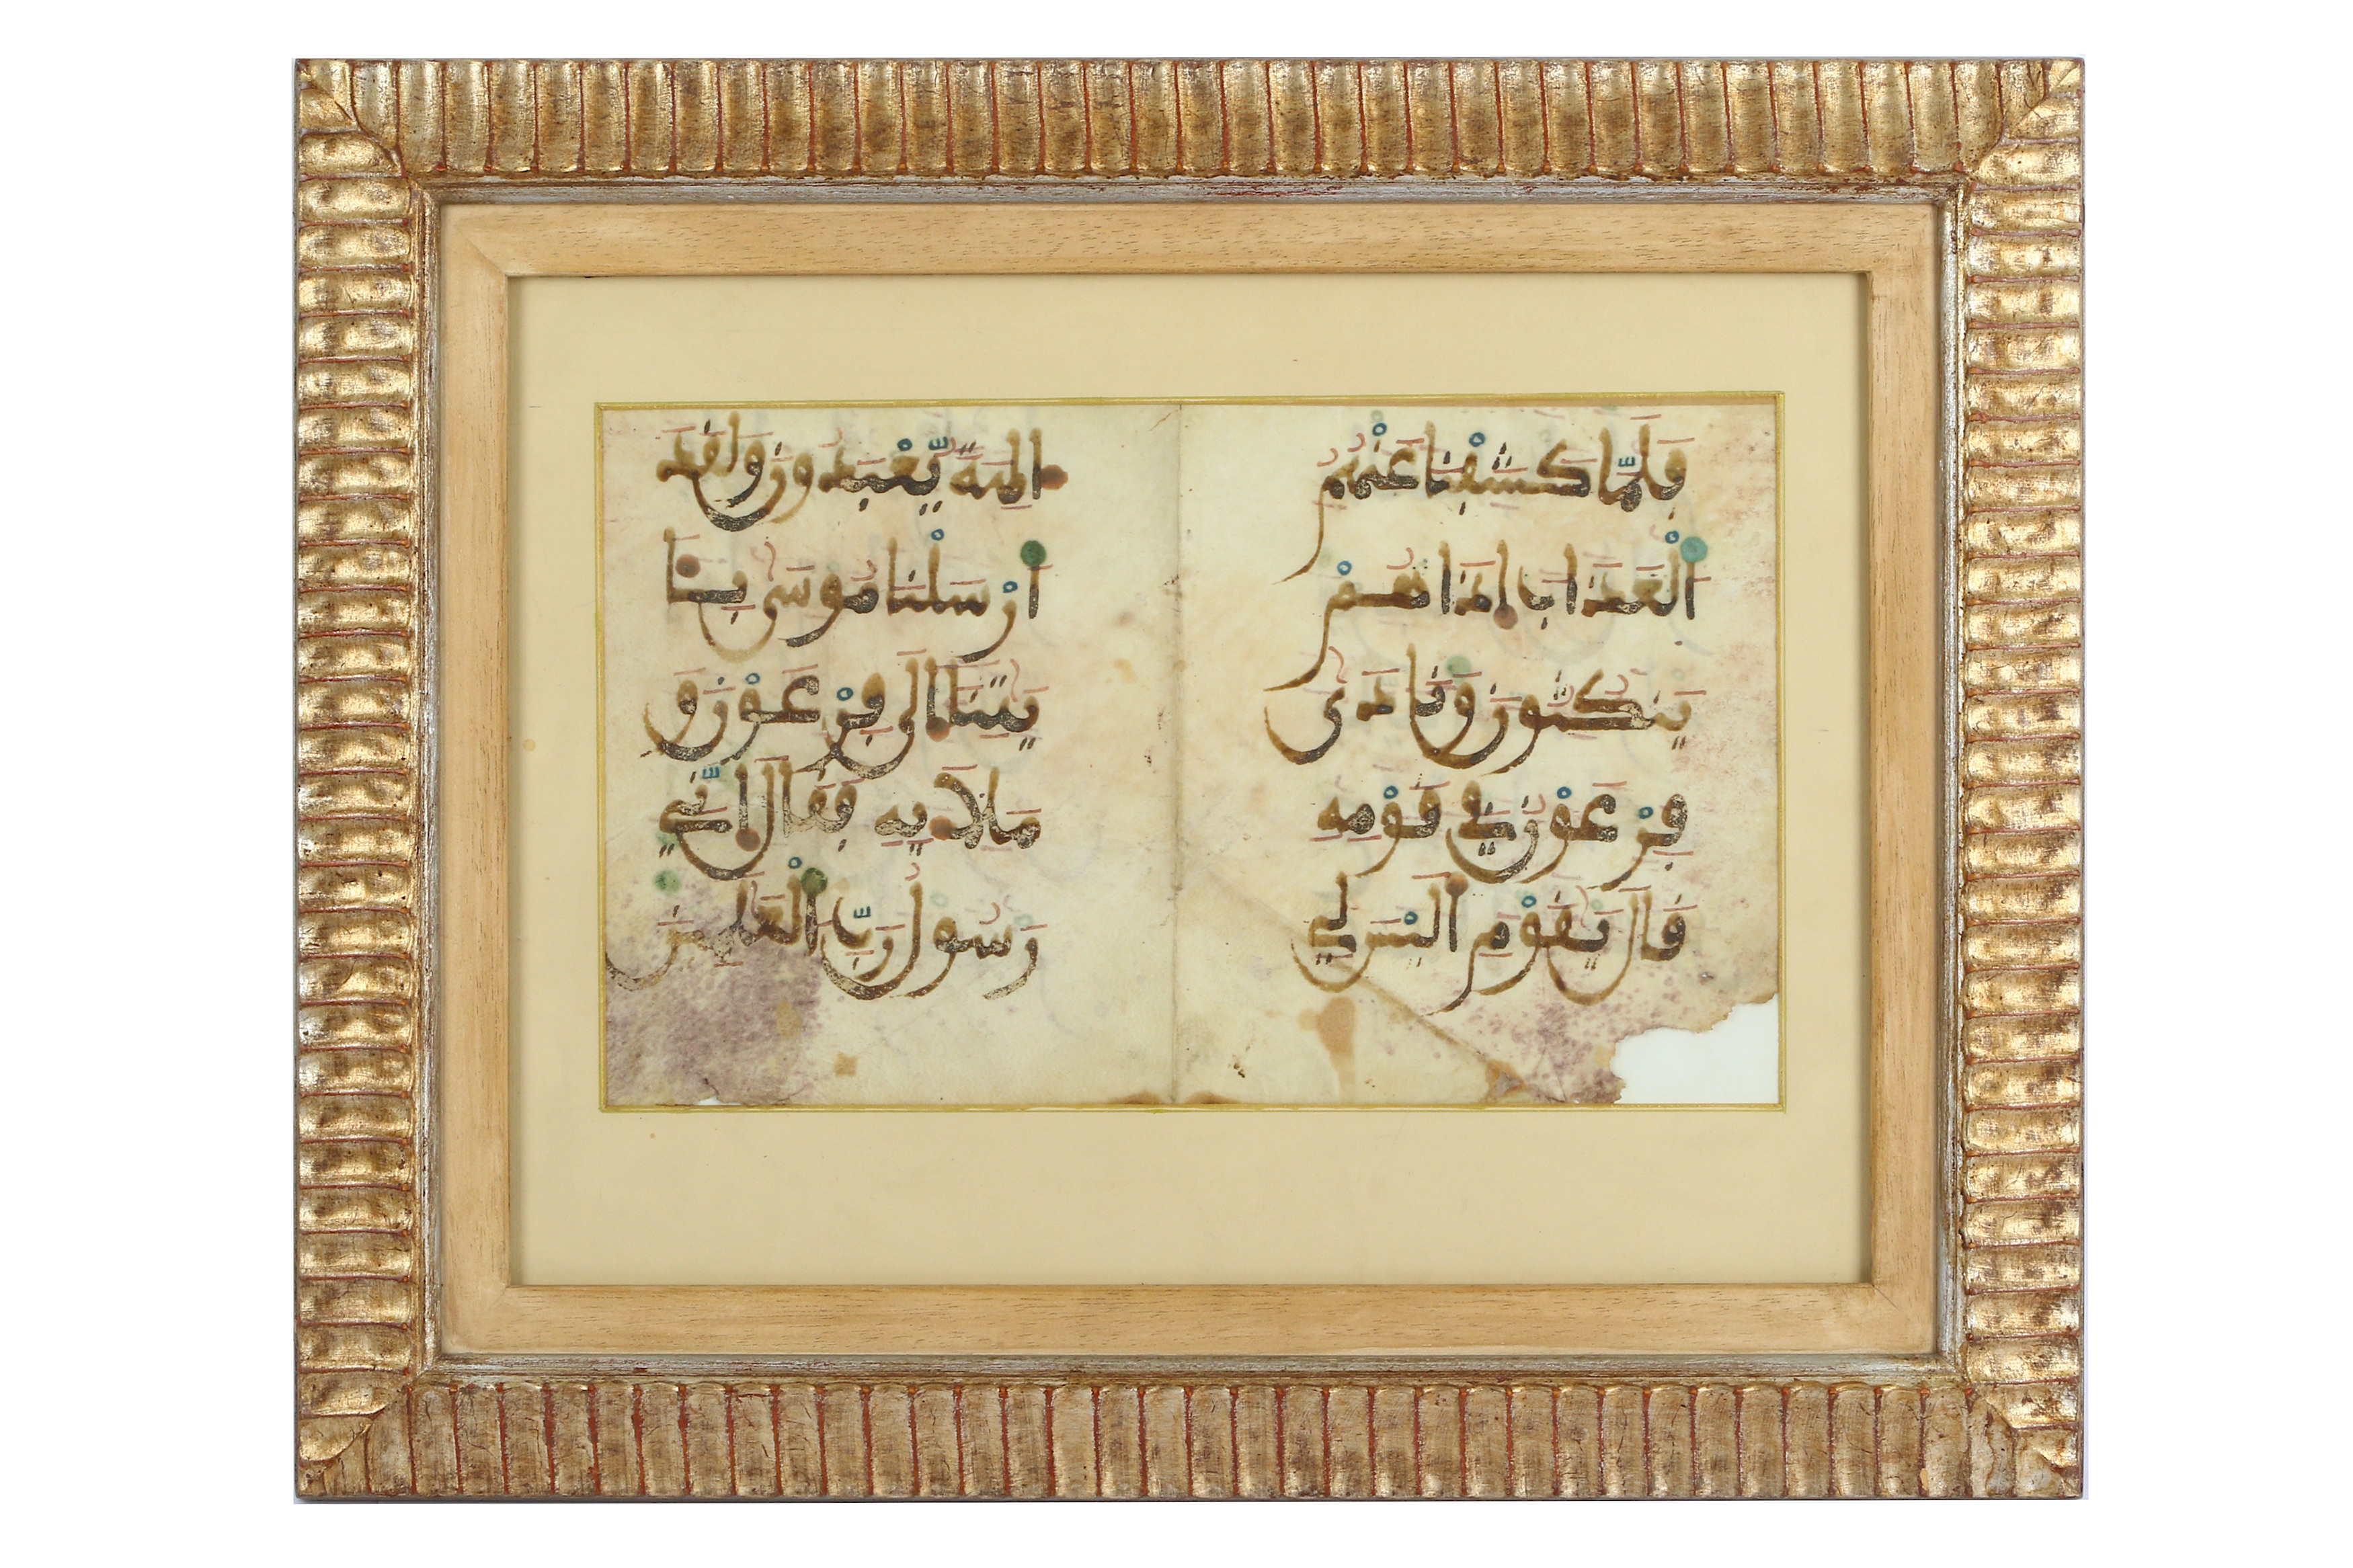 فَلَمَّا كَشَفْنَا عَنْهُمُ
الْعَذَابَ إِذَا هُمْ
يَنكُثُونَ وَنَادَىٰ
فِرْعَوْنُ فِي قَوْمِهِ
قَالَ يَٰقَوْمِ أَلَيْسَ لِي
ءَالِهَةً يُعْبَدُونَ وَلَقَدَ
اَرْسَلْنَا مُوسَىٰ بِـَٔا
يَٰتِنَا إِلَىٰ فِرْعَوْنَ وَ
مَلَإِيْهِ فَقَالَ إِنِّي
رَسُولُ رَبِّ الْعَٰلَمِينَ